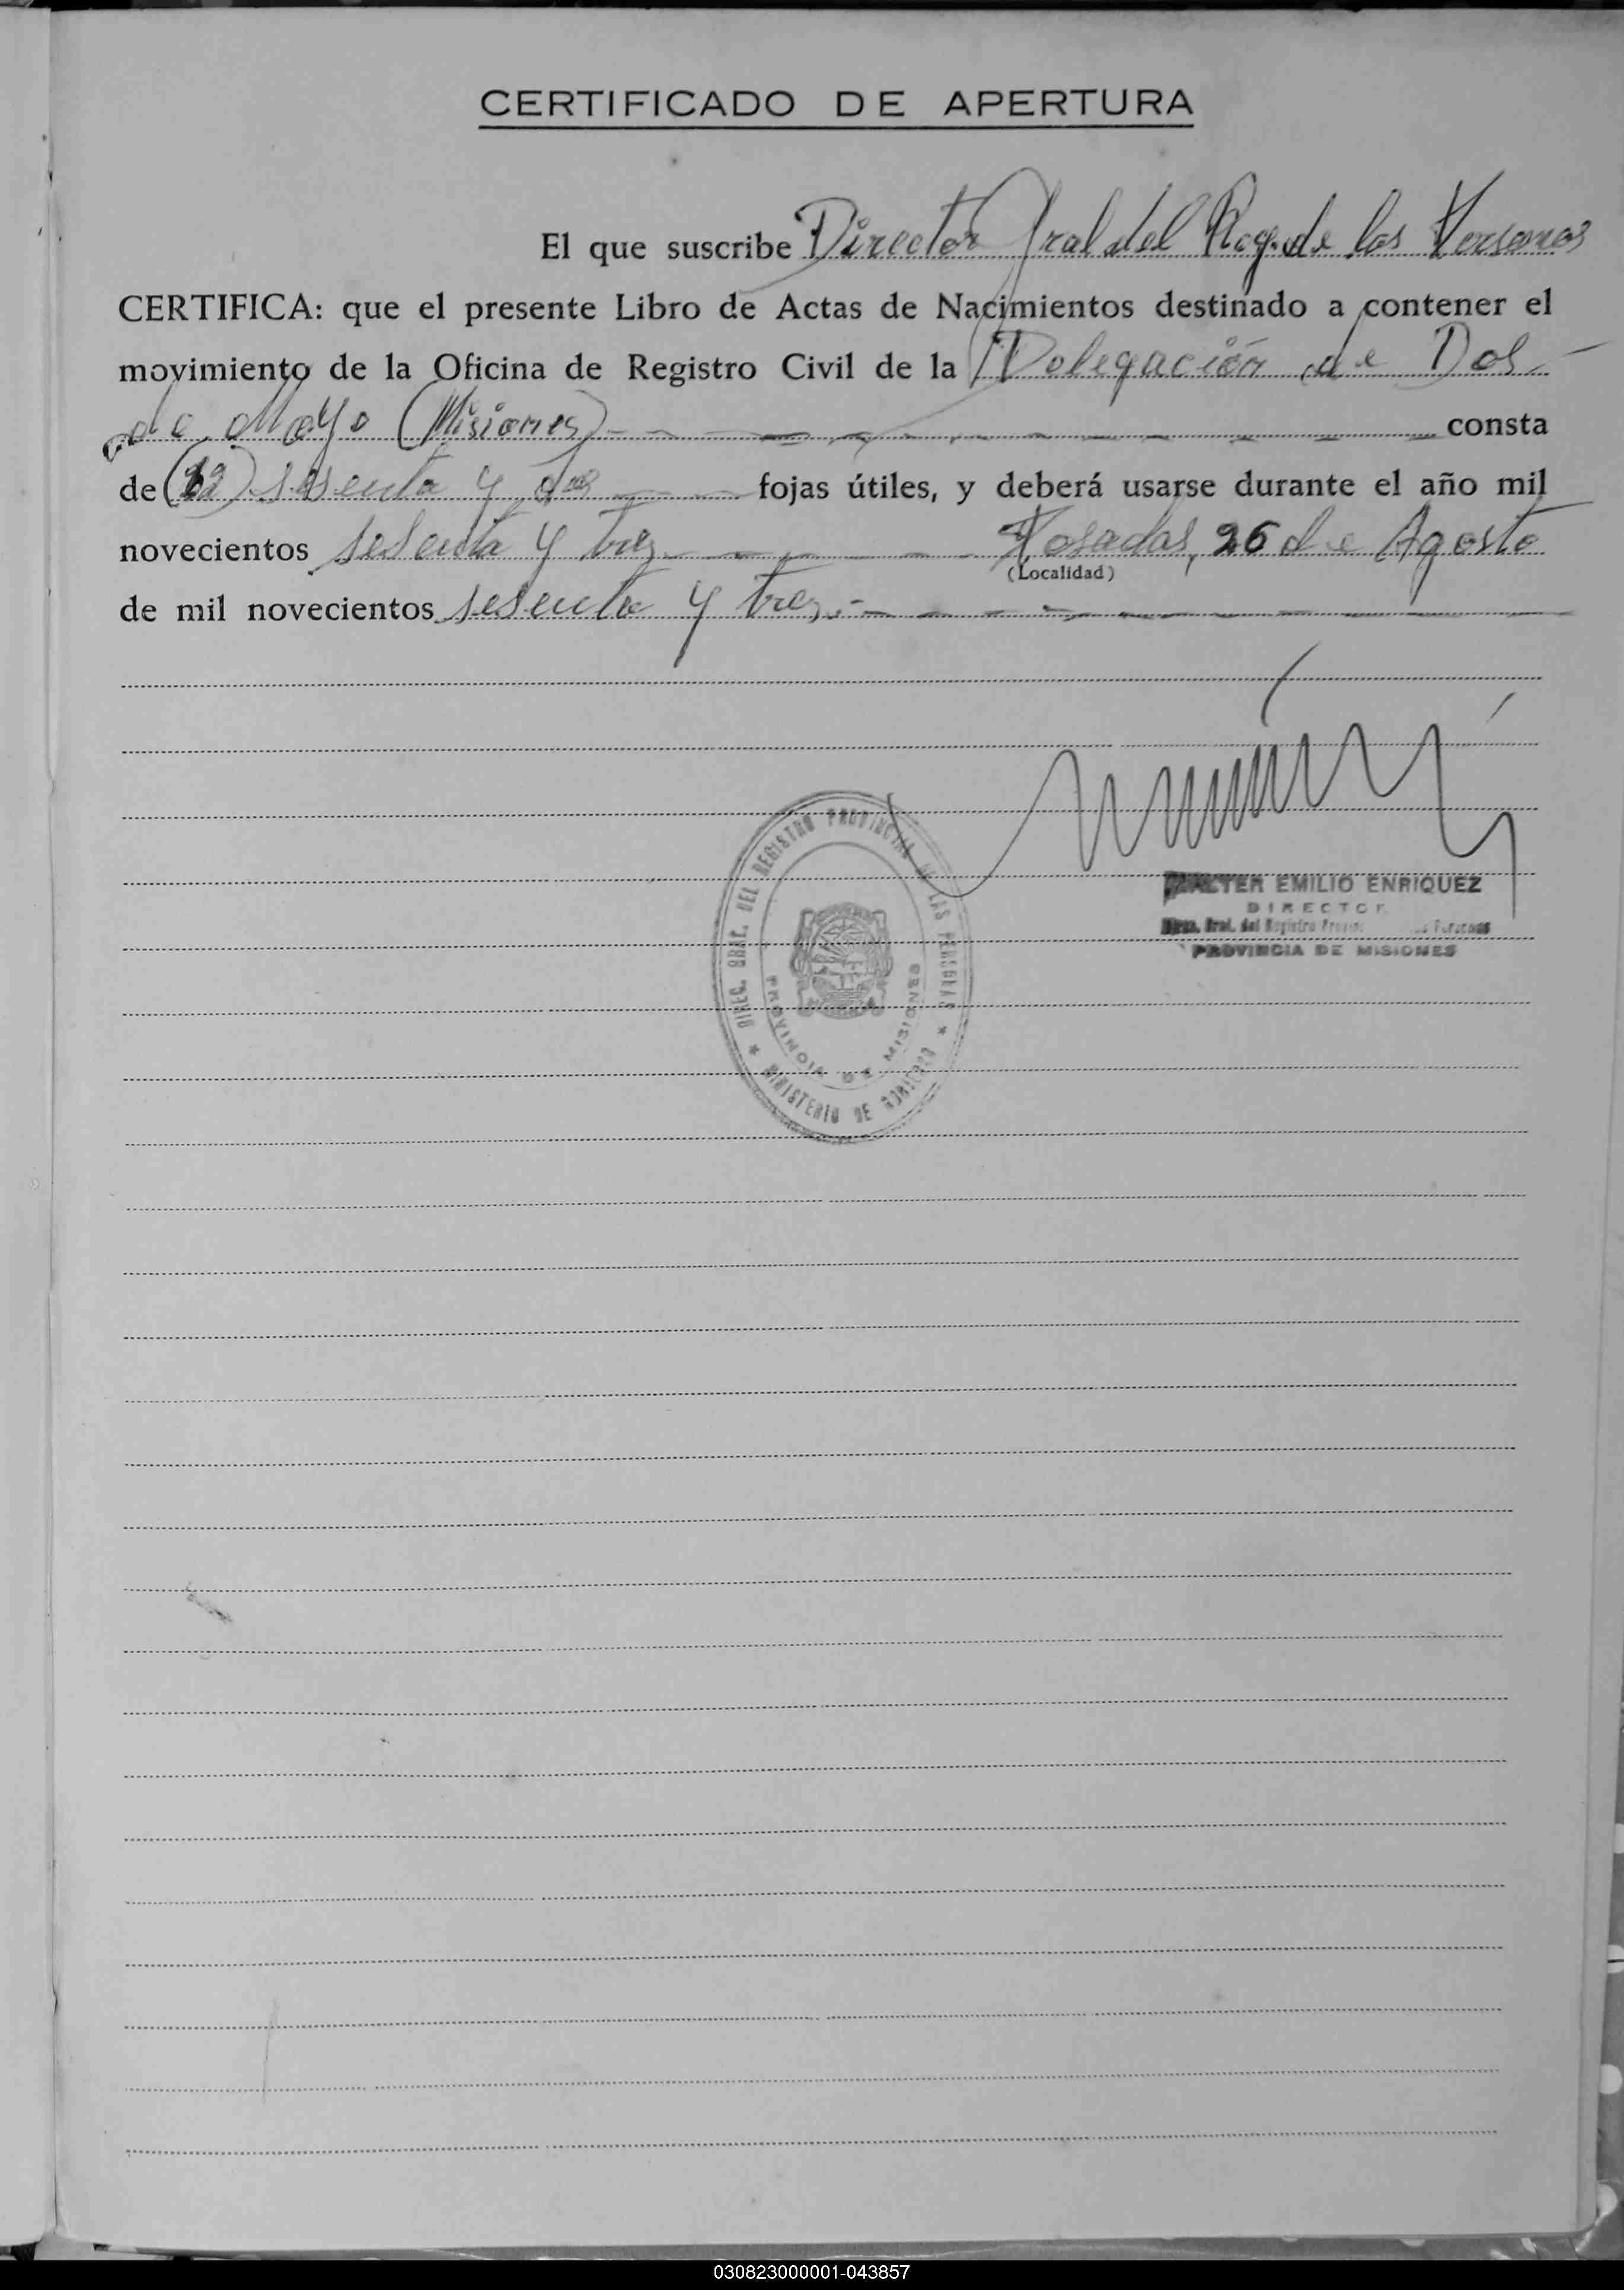 CERTIFICADO DE APERTURA
El que suscribe Director Gral del Reg. de las Personas
CERTIFICA: que el presente Libro de Actas de Nacimientos destinado a contener el
movimiento de la Oficina de Registro Civil de la Delegación de Dos
de Mayo (Misiones) consta
de (62) sesenta y dos fojas útiles, y deberá usarse durante el año mil
novecientos sesenta y tres Posadas, 26 de Agosto
(Localidad)
de mil novecientos sesenta y tres.-
DIREC. GRAL. DEL REGISTRO PROVINCIAL DE LAS PERSONAS
PROVINCIA DE MISIONES
MINISTERIO DE GOBIERNO
WALTER EMILIO ENRIQUEZ
DIRECTOR
Gral. del Registro Personas
PROVINCIA DE MISIONES
030823000001-043857